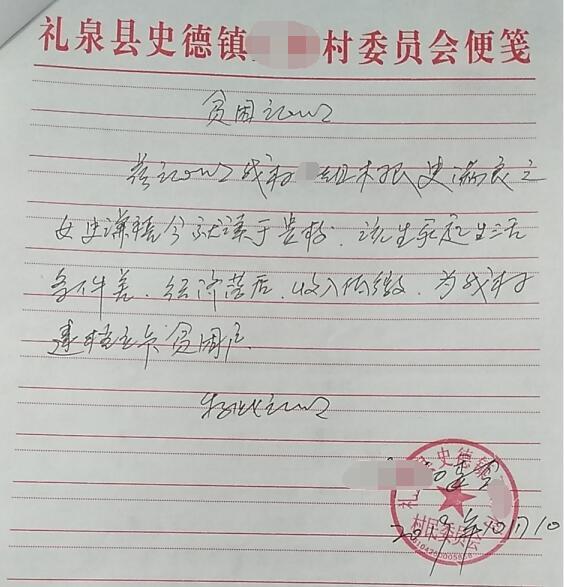 礼泉县史德镇 村委员会便笺
贫困证明
兹证明我村 组村民史满良之
女史谦 今就读于贵校,该生家庭生活
条件差,经济落后,收入低微,为我村
建档立卡贫困户
特此证明
史德镇
村民委员会
10月10